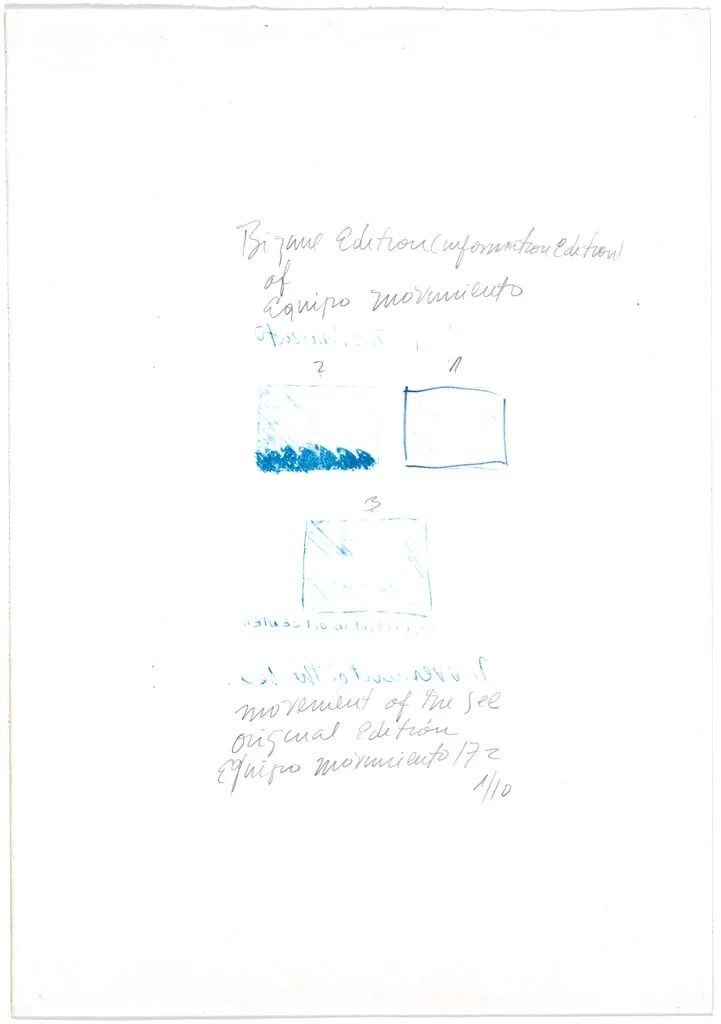 Bizane Edition (information Edition)
of
Equipo movimiento
2 1
3
movement of the see
original Edition
Equipo movimiento/72
1/10